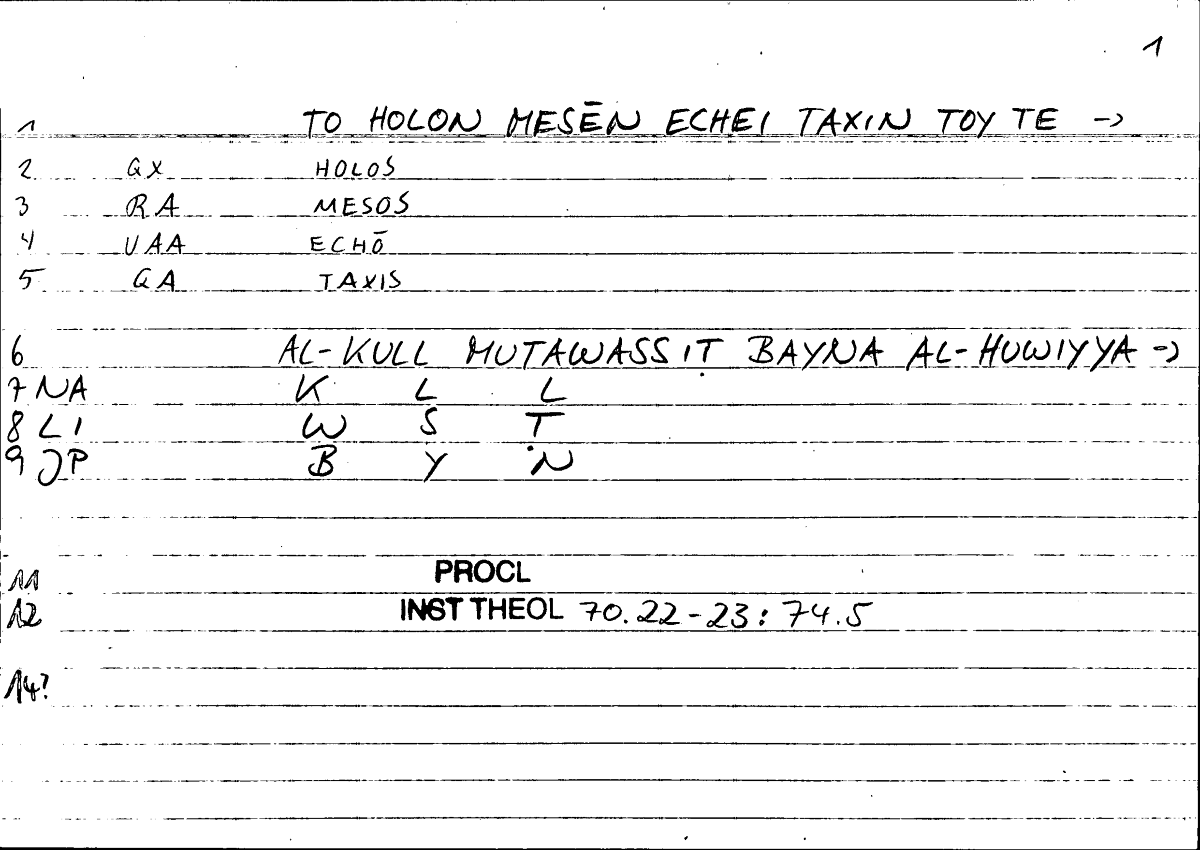 1
1 TO HOLON MESĒN ECHEI TAXIN TOY TE →
2 GX HOLOS
3 RA MESOS
4 UAA ECHŌ
5 GA TAXIS
6 AL-KULL MUTAWASSIṬ BAYNA AL-HUWIYYA →
7 NA K L L
8 LI W S Ṭ
9 JP B Y N
11 PROCL
12 INST THEOL 70.22-23: 74.5
14?